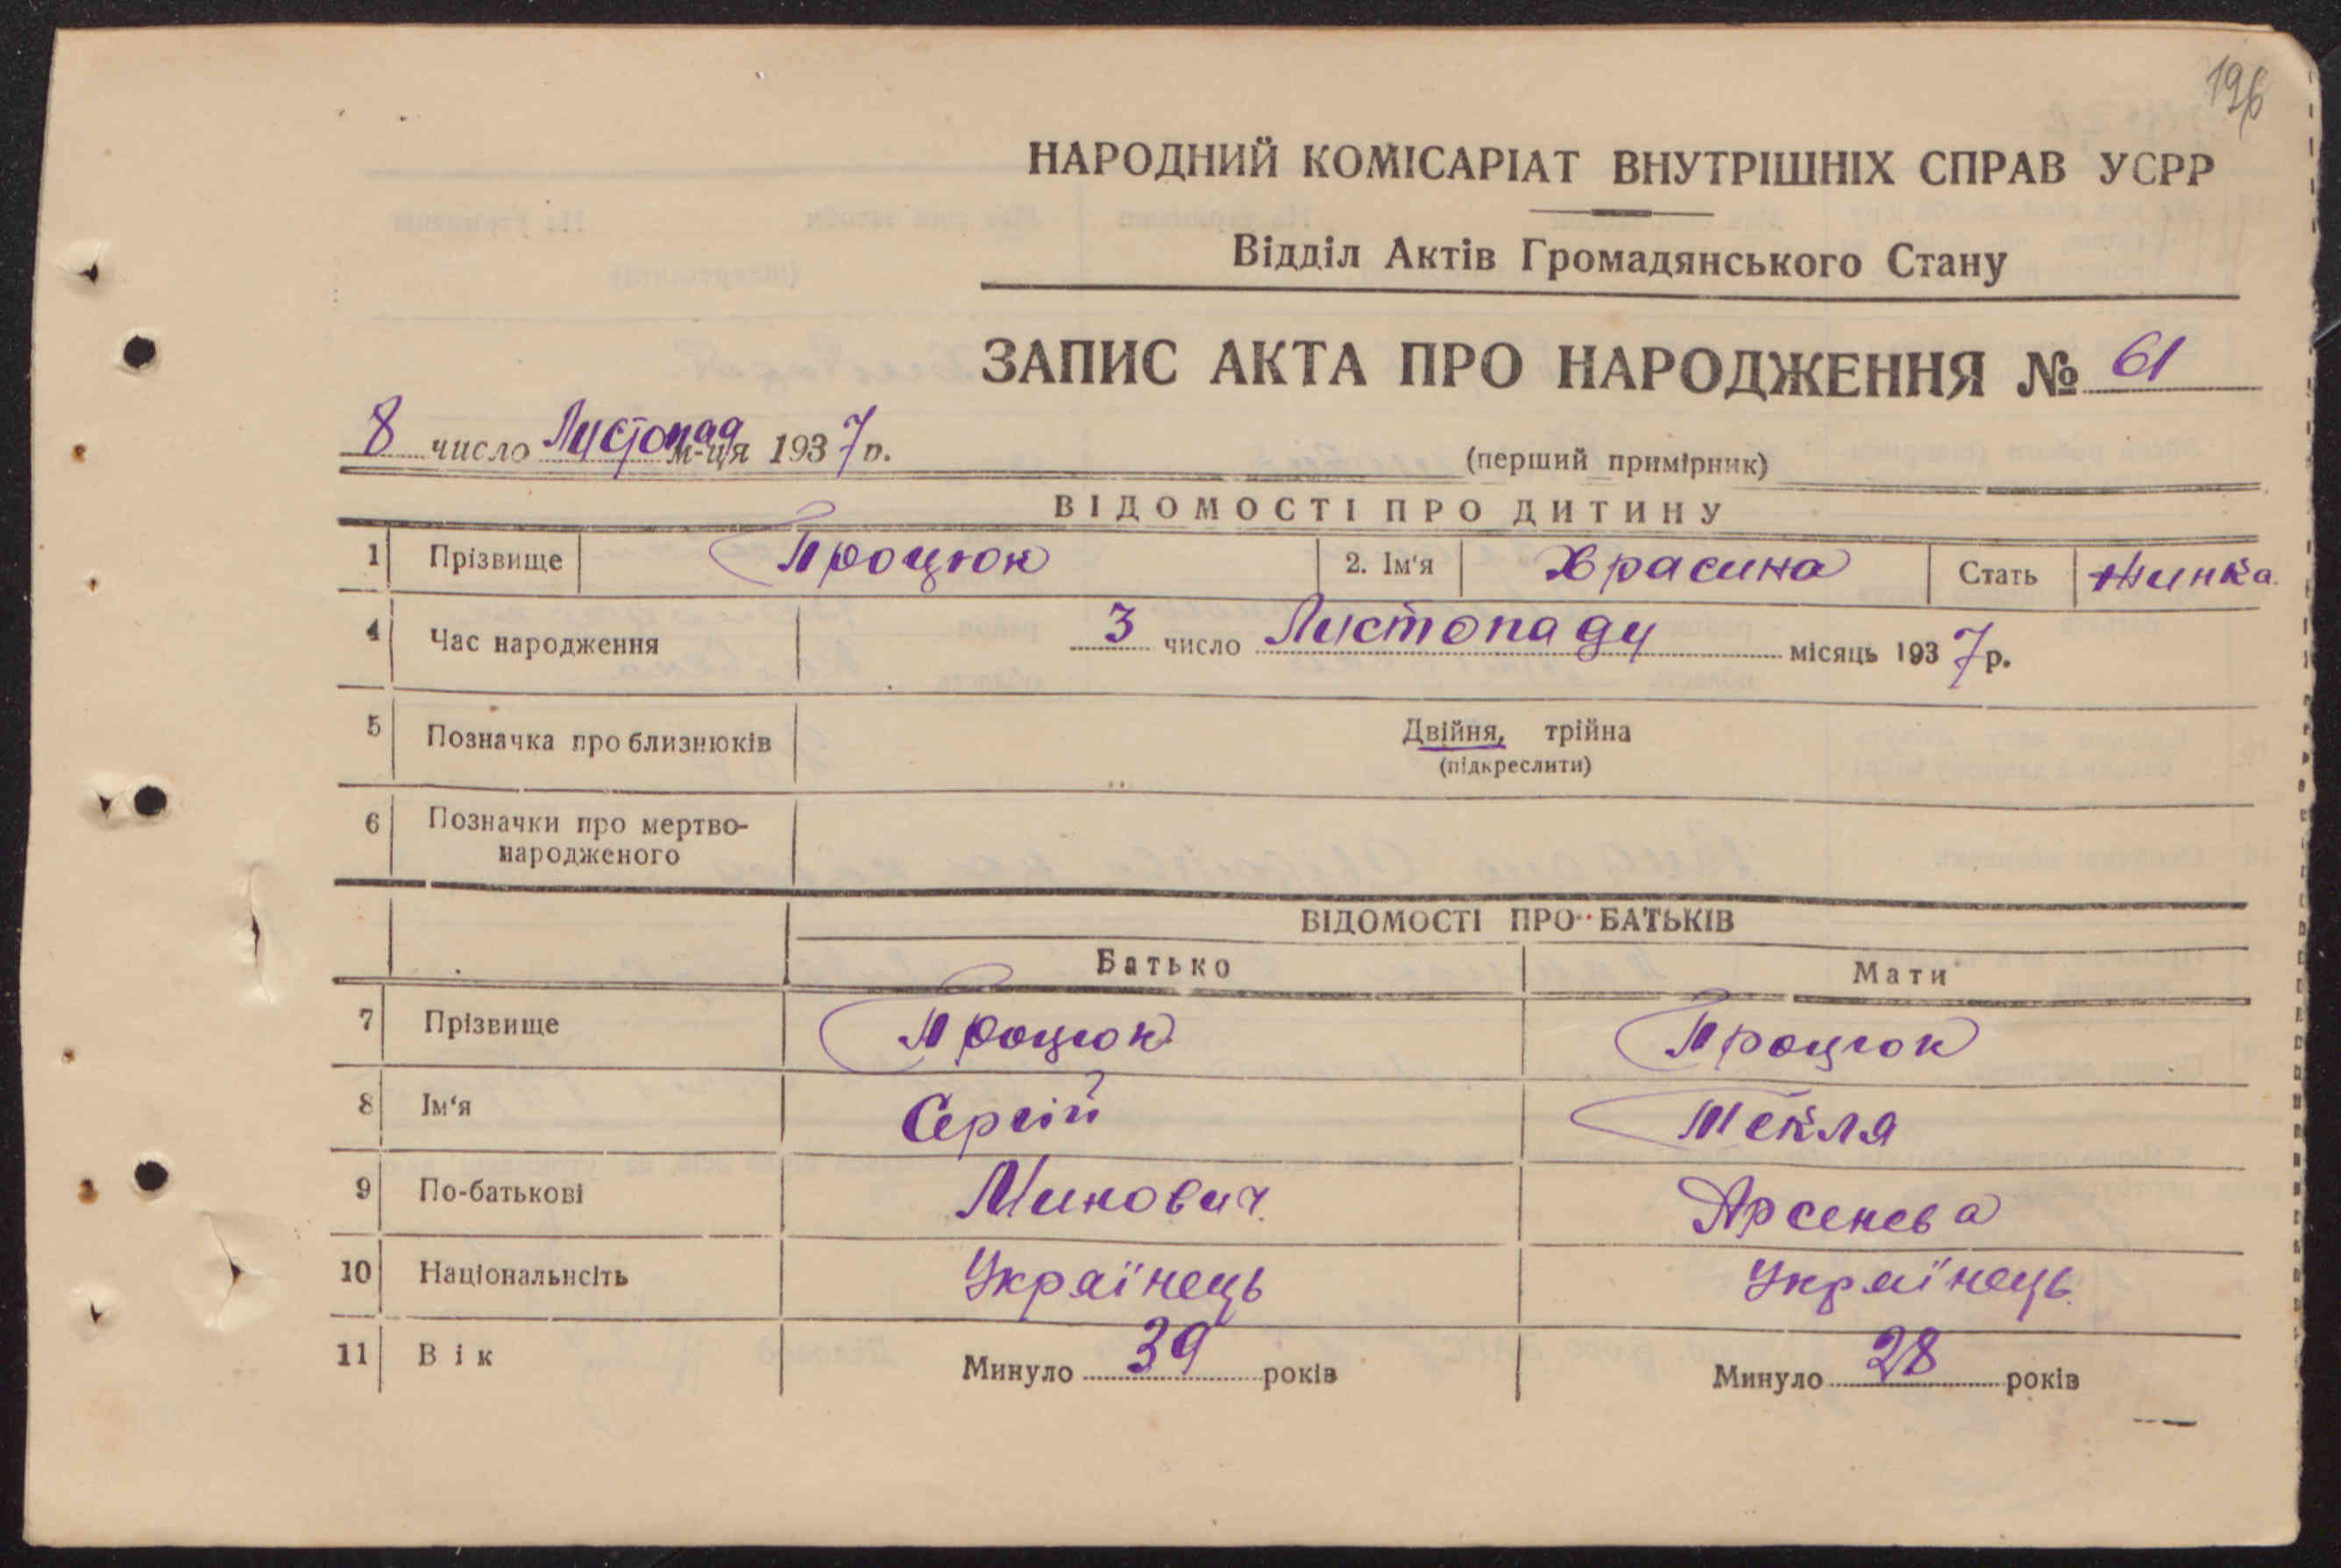 196
НАРОДНИЙ КОМІСАРІАТ ВНУТРІШНІХ СПРАВ УСРР
Відділ Актів Громадянського Стану
ЗАПИС АКТА ПРО НАРОДЖЕННЯ № 61
8 число Листопад м-ця 1937 р.
(перший примірник)
ВІДОМОСТІ ПРО ДИТИНУ
1 Прізвище Процюк 2. Ім'я Храсина Стать жинка
4 Час народження 3 число Листопаду місяць 1937 р.
5 Позначка про близнюків Двійня, трійна
(підкреслити)
6 Позначки про мертво-
народженого
ВІДОМОСТІ ПРО БАТЬКІВ
Батько Мати
7 Прізвище Процюк Процюк
8 Ім'я Сергій Текля
9 По-батькові Минович Арсенева
10 Національнсіть Українець Українець
11 Вік Минуло 39 років Минуло 28 років